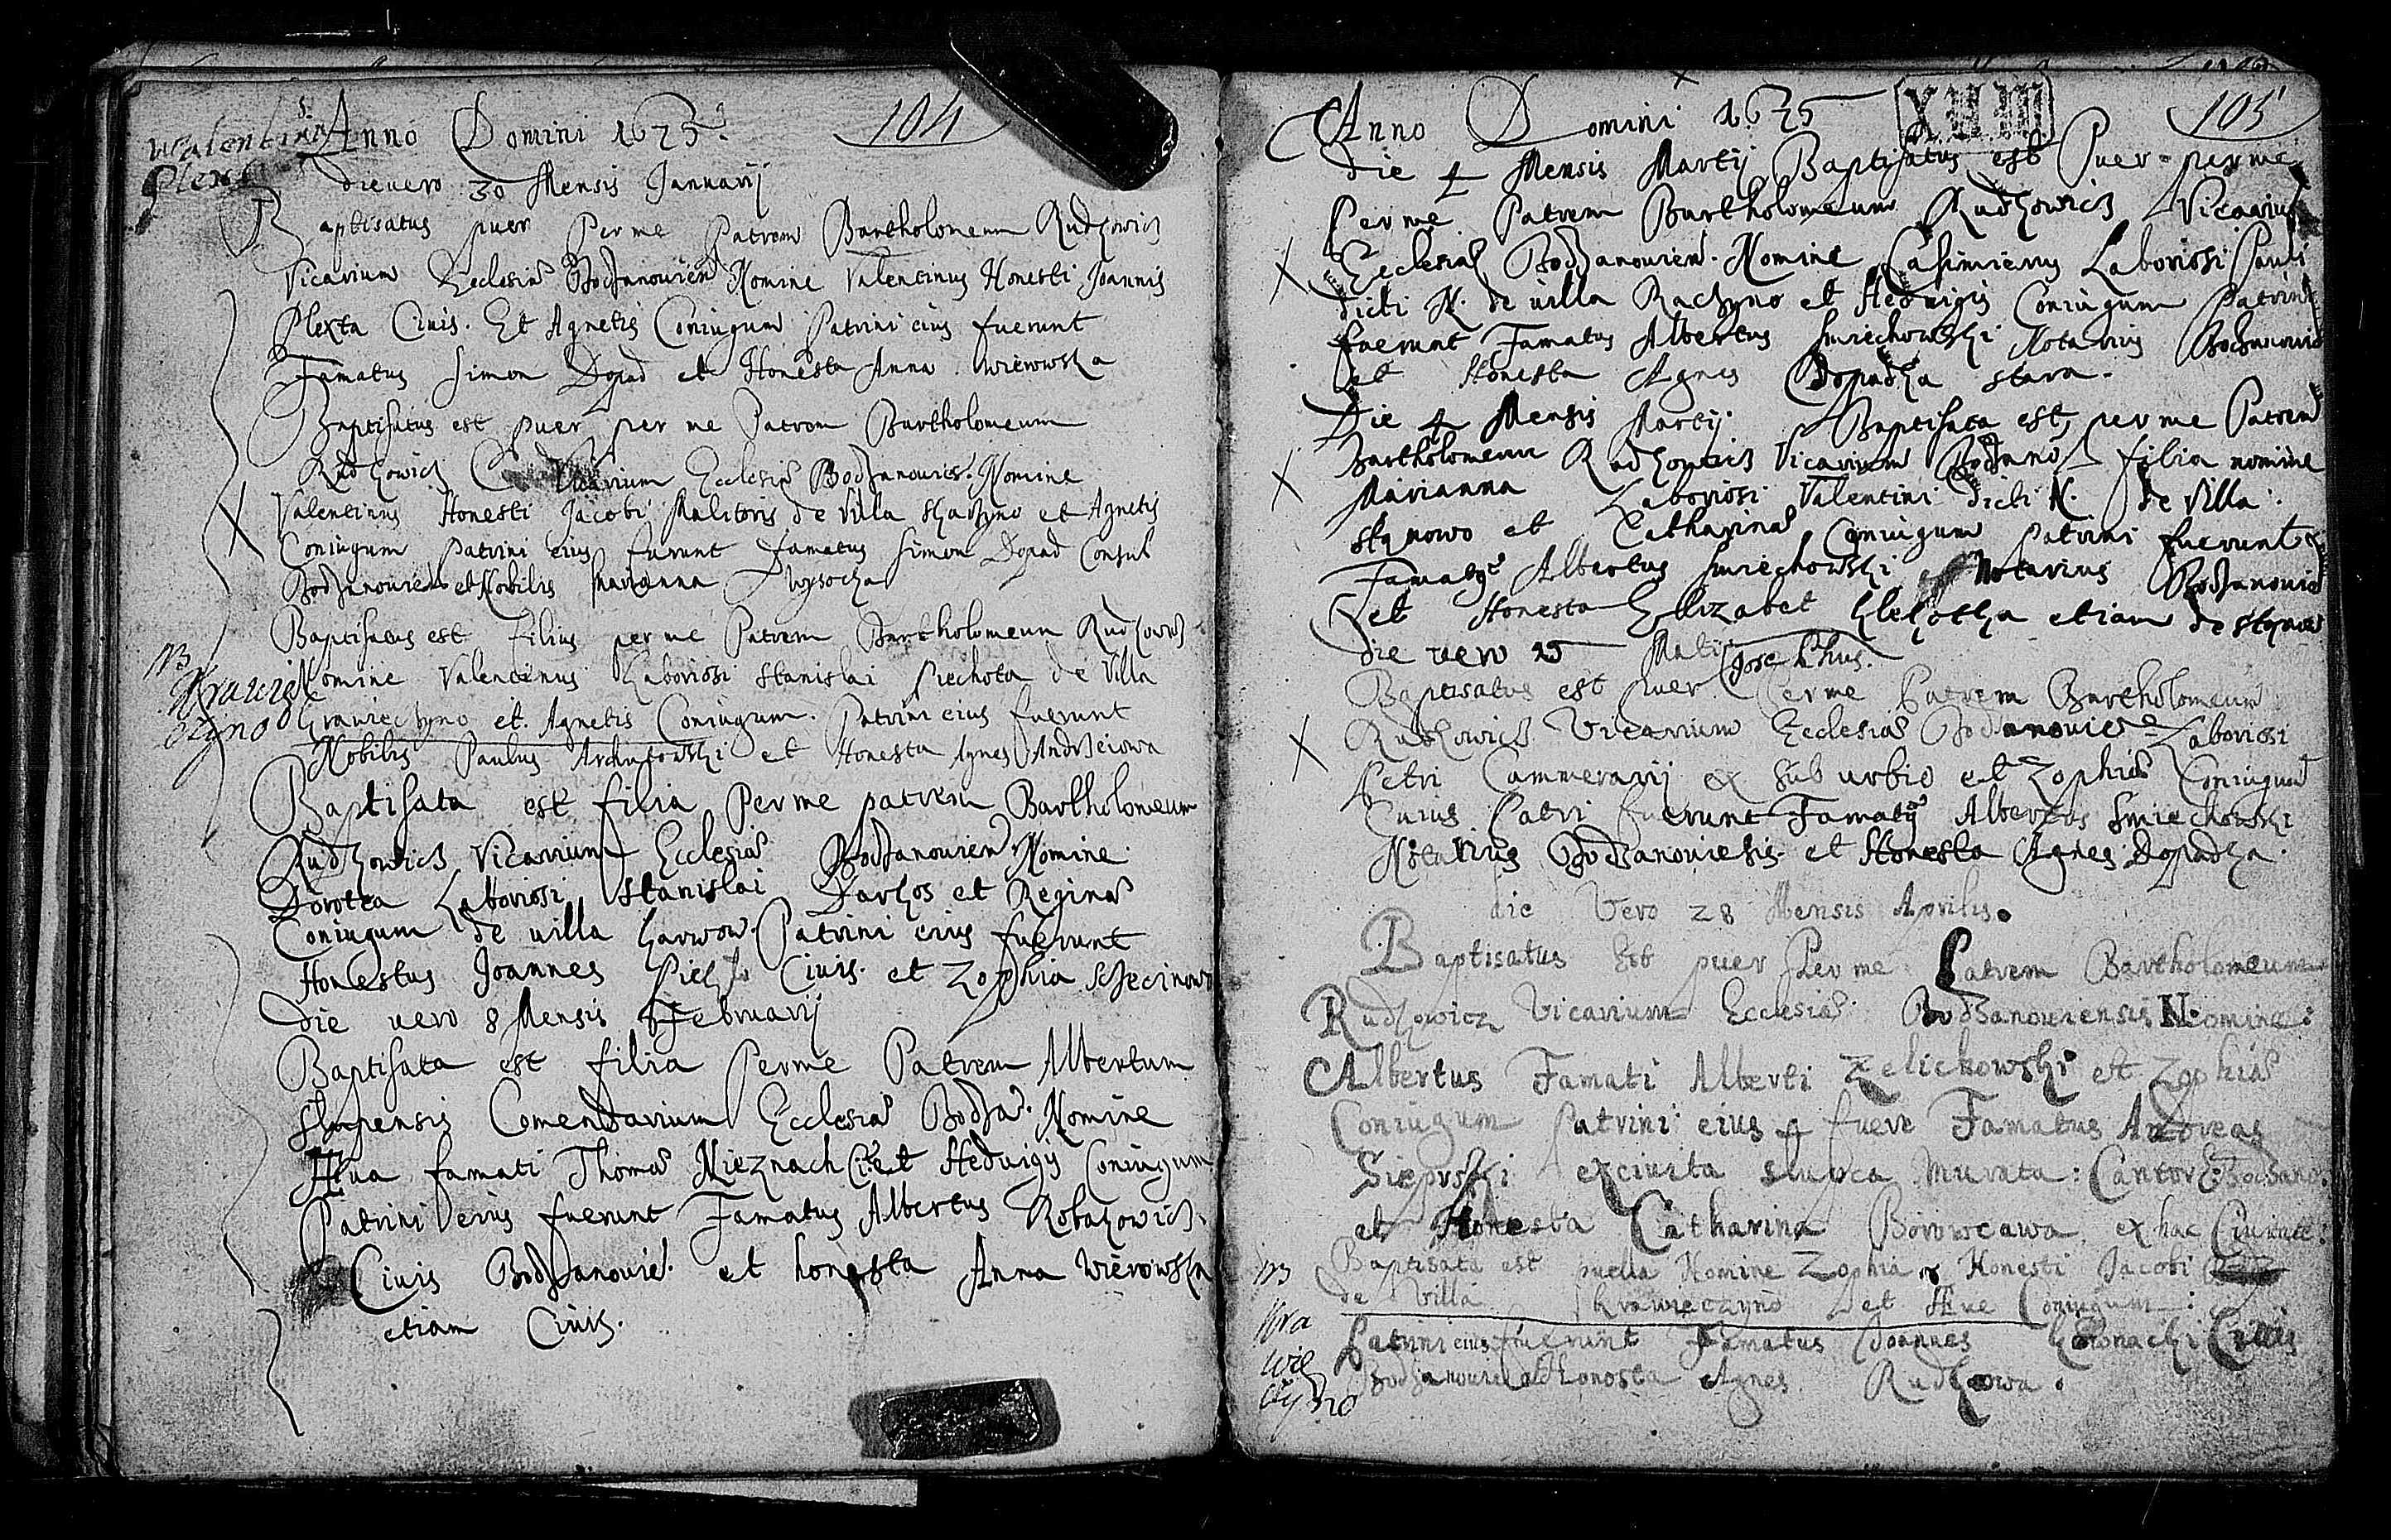 104
Walentinus
Plexta
Anno Domini 1675.
die vero 30 Mensis Januarij
Baptisatus puer Per me Patrem Bartholomeum Rudzowicz
Vicarium Ecclesiæ Bodzanovien Nomine Valentinus Honesti Joannis
Plexta Civis. Et Agnetis Coniugum Patrini eius fuerunt
Famatus Simon Dopad et Honesta Anna Wierowska
Baptisatus est puer per me Patrem Bartholomeum
Rudzowicz Vicarium Ecclesiæ Bodzanovien. Nomine
Valentinus Honesti Jacobi Molitoris de Villa et Agnetis
Coniugum Patrini eius fuerunt famatus Simon Dopad Consul
Bodzanovien et Nobilis Marianna Wysocka
Baptisatus est filius per me Patrem Bartholomeum Rudzowicz
Nomine Valentinus Laboriosi Stanislai Piechota de Villa
Krawieczyno et Agnetis Coniugum. Patrini eius fuerunt
Nobilis Paulus et Honesta Agnes Andrzeiowa
Baptisata est filia Per me patrem Bartholomeum
Rudzowicz Vicarium Ecclesiæ Bodzanovien. Nomine
Dorotea Laboriosi Stanislai Darzos et Reginæ
Coniugum de villa Patrini eius fuerunt
Honestus Joannes Civis. et Zophia
die vero 8 Mensis Februarij
Baptisata est filia Per me Patrem Albertum
Slupensis Comendarium Ecclesiæ Bodza. Nomine
Hæva famati Thomæ Nieznach et Hedvigis Coniugum
Patrini eius fuerunt Famatus Albertus
Civis Bodzanovie. et honesta Anna Wierowska
etiam Civis.
105
XVIII
Anno Domini 1675
die 4 Mensis Martij Baptisatus est Puer per me
Per me Patrem Bartholomeum Rudzowicz Vicarium
Ecclesiæ Bodzanovien. Nomine Casimierus Laboriosi Pauli
dicti N. de villa Raczyno et Hedvigis Coniugum Patrini
fuerunt Famatus Albertus Smiechowski Notarius Bodzanovie
et Honesta Agnes Dopadka stara.
Die 4 Mensis Martij Baptisata est per me Patrem
Bartholomeum Rudzowicz Vicarium Bodzano filia nomine
Marianna Laboriosi Valentini dicti N. de Villa
et Catharinæ Coniugum Patrini fuerunt
Famatus Albertus Smiechowski Notarius Bodzanovie
et Honesta Elizabet etiam de
die vero Josephus.
Baptisatus est puer Per me Patrem Bartholomeum
Rudzowicz Vicarium Ecclesiæ Bodzanovie Laboriosi
Petri Cammerarij ex Suburbio et Zophiæ Coniugum
Cuius Patri fuerunt Famatus Albertus Smiechowski
Notarius Bodzanoviesis et Honesta Agnes Dopadka.
die Vero 28 Mensis Aprilis.
Baptisatus Est puer Per me Patrem Bartholomeum
Rudzowicz Vicarium Ecclesiæ Bodzanoviensis Nomine:
Albertus Famati Alberti Zelichowski et Zophiæ
Coniugum Patrini eius fuere Famatus Andreas
Sieprski Murata: Cantor Bodzano.
et Honesta Catharina ex hac Civitate:
Baptisata est puella Nomine Zophia Honesti Jacobi
de Villa Krawieczyno et Coniugum:
Patrini eius fuerunt Famatus Joannes Civis
Bodzanovie et Honesta Agnes